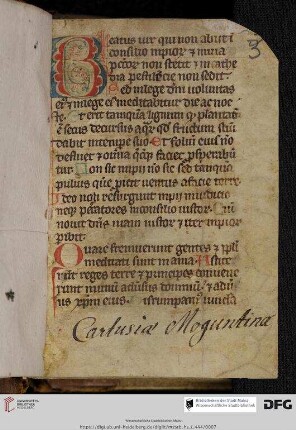 Beatus vir qui non abiit i
consilio impior et in via
pctor non stetit et in cathe
dra pestilecie non sedit.
Sed in lege dni voluntas
ei et in lege ei meditabitur die ac noc
te. Et erit tanqua lignum qd plantatu
e secus decursus aqr qd fructum suu
dabit in tempe suo Et foliu eius no
defluet et omia qcqz faciet pspabutur
Non sic impii no sic sed tanqua
puluis que picit ventus a facie terre
Ideo non resurgunt impii in iudicio
neqz pctores in consilio iustor
nouit dns viam iustor et iter impior
pibit.
Quare fremuerunt gentes et ppli
meditati sunt inania Astite
runt reges terre et principes convene
runt in unu aduersus dominu et aduer
sus xpm eius Dirumpam vincla
Cartusiæ Moguntinæ
3
UNIVERSITÄTS-
BIBLIOTHEK
HEIDELBERG
Bibliotheken der Stadt Mainz
Wissenschaftliche Stadtbibliothek
DFG